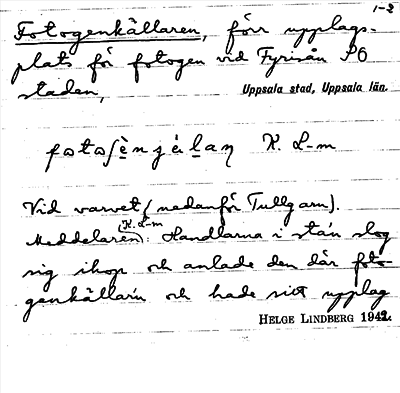 1-2
Fotogenkällaren, förr upplags-
plats för fotogen vid Fyrisån SÖ
staden,
Uppsala stad, Uppsala län.
K. L-m
Vid varvet (nedanför Tullgarn).
K. L-m
Meddelaren: Handlarna i stan slog
sig ihop och anlade den där foto-
genkällarn och hade sitt upplag
HELGE LINDBERG 1942.